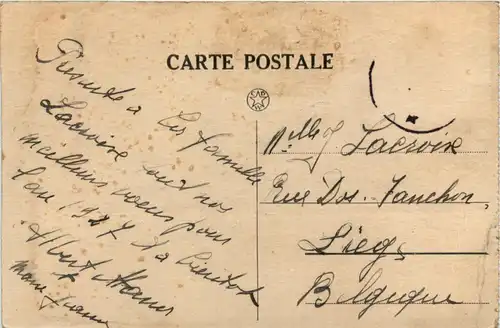 CARTE POSTALE
Presente a
la famille
Lacroix tout nos
meilleurs voeux pour
l'an 1927 et a bientot
Albert
Mlle J Lacroix
Rue Dos. Fanchon,
Liége
Belgique